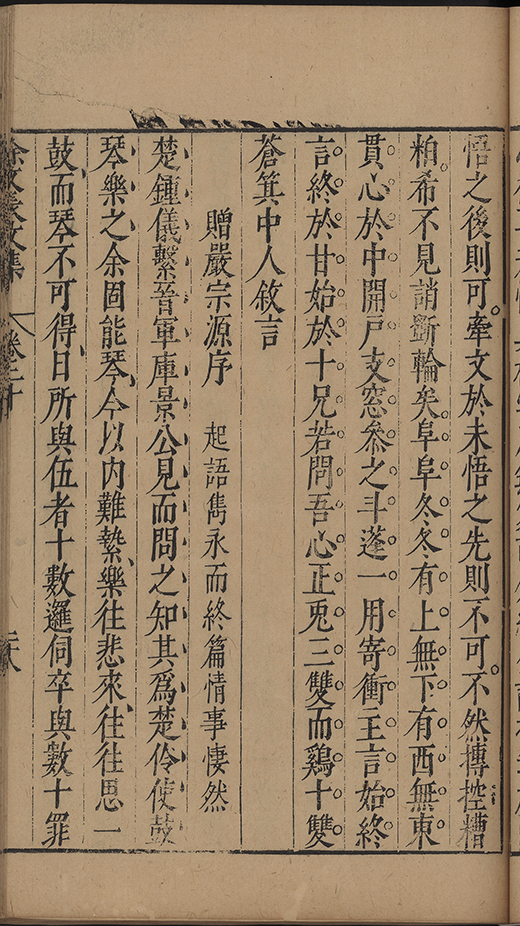 悟之後則可牽文於未悟之先則不可不然摶控糟
粕希不見誚斲輪矣阜阜冬冬有上無下有西無東
貫心於中開戸支窓叅之斗蓬一用寄衝主言始終
言終於甘始於十兄若問吾心正兎三雙而鷄十雙
蒼箕中人敘言
贈嚴宗源序 起語雋永而終篇情事悽然
楚鍾儀繫晉軍庫景公見而問之知其爲楚伶使鼓
琴樂之余固能琴今以内難縶樂往悲來往往思一
鼓而琴不可得日所與伍者十數邏伺卒與數十罪
徐文長文集 卷二十 二八